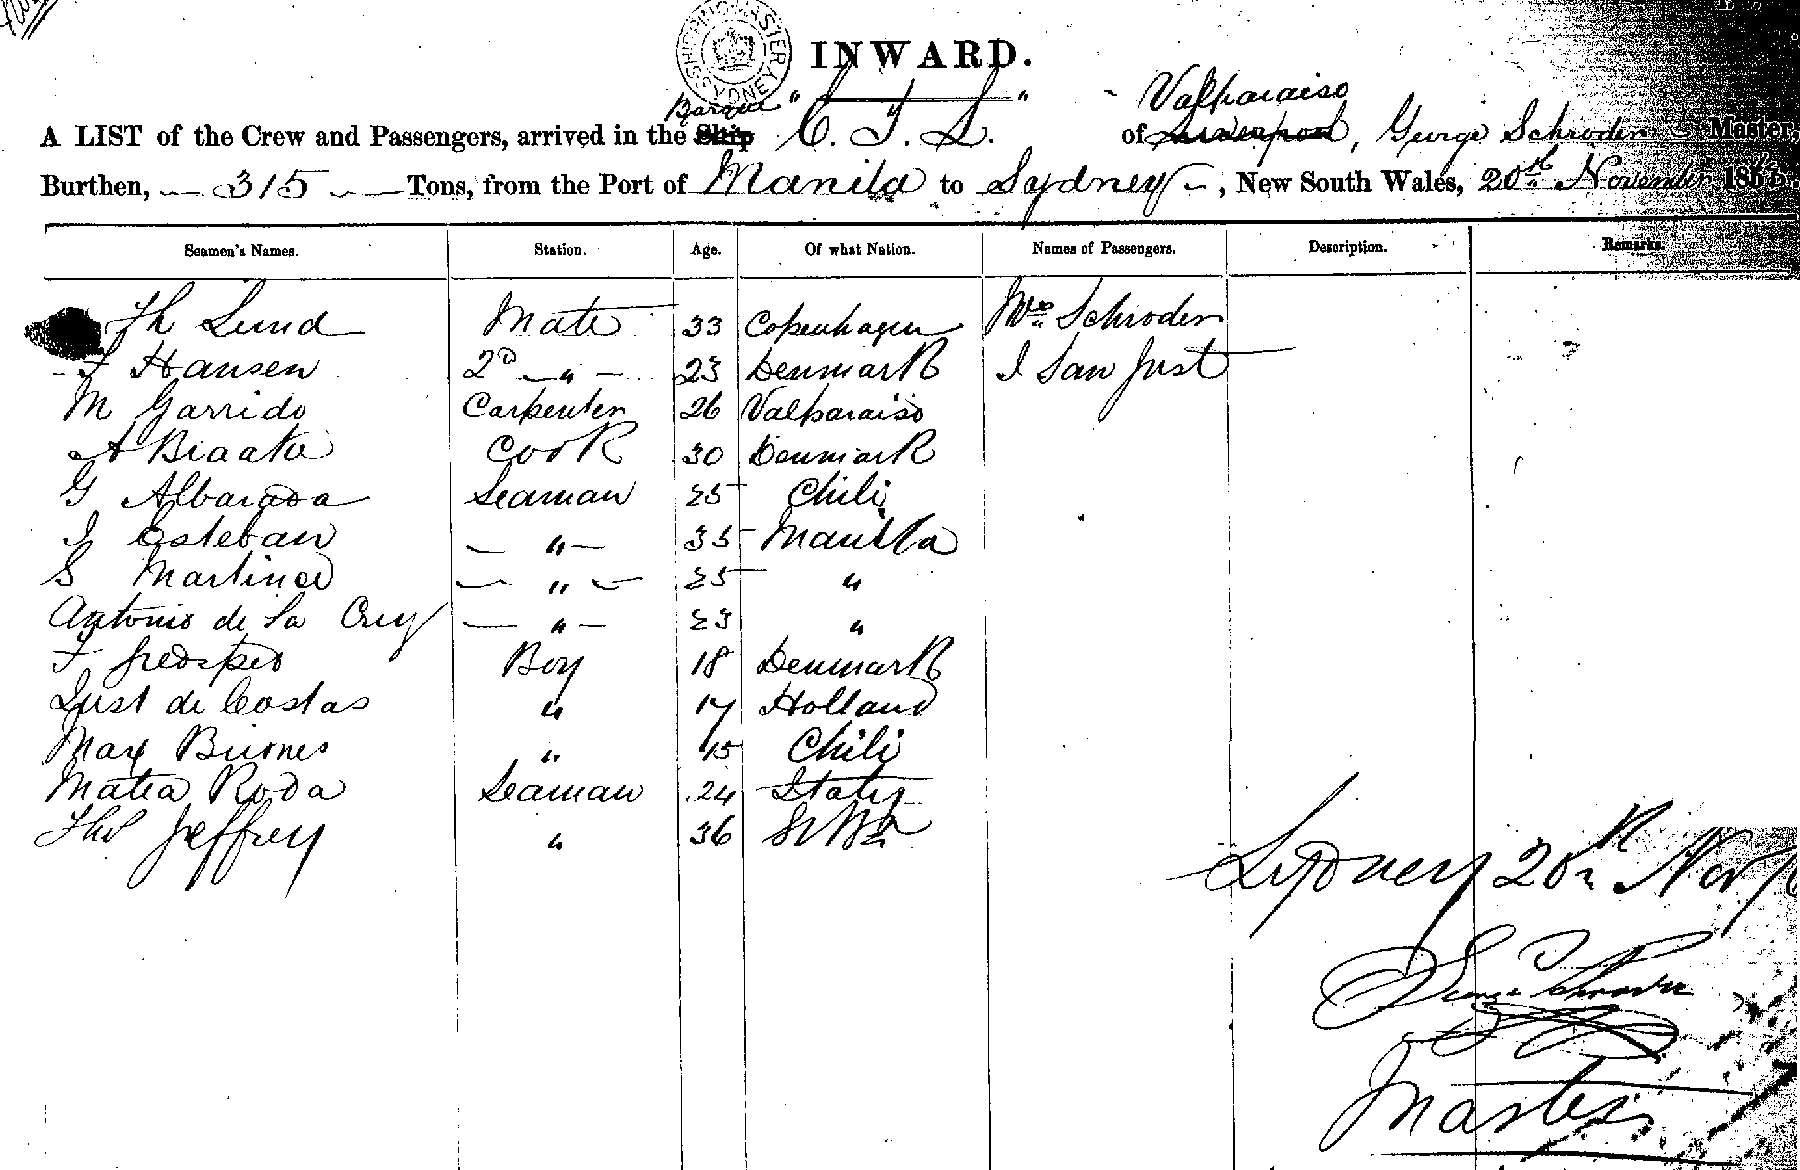 SHIPPING MASTER SYDNEY
INWARD.
A LIST of the Crew and Passengers, arrived in the Ship Barque "C. T. L." of Liverpool Valparaiso, George Schroder Master,
Burthen, 315 Tons, from the Port of Manila to Sydney, New South Wales, 20th November 186
Seamen's Names. Station. Age. Of what Nation. Names of Passengers. Description. Remarks.
Th Lund Mate 33 Copenhagen Mrs Schroder
Hansen 2D " 23 Denmark I San Just
M Garrido Carpenter 26 Valparaiso
A Biaata Cook 30 Denmark
G Albarada Seaman 25 Chili
J Esteban " 35 Manilla
S Martined " 25 "
Antonio de La Cruz " 23 "
F Boy 18 Denmark
Just de Costas " 17 Holland
Max " 15 Chili
Matea Roda Seaman 24 Italy
Thos Jeffrey " 36
Sydney 20th Nov
George Schroder
Master